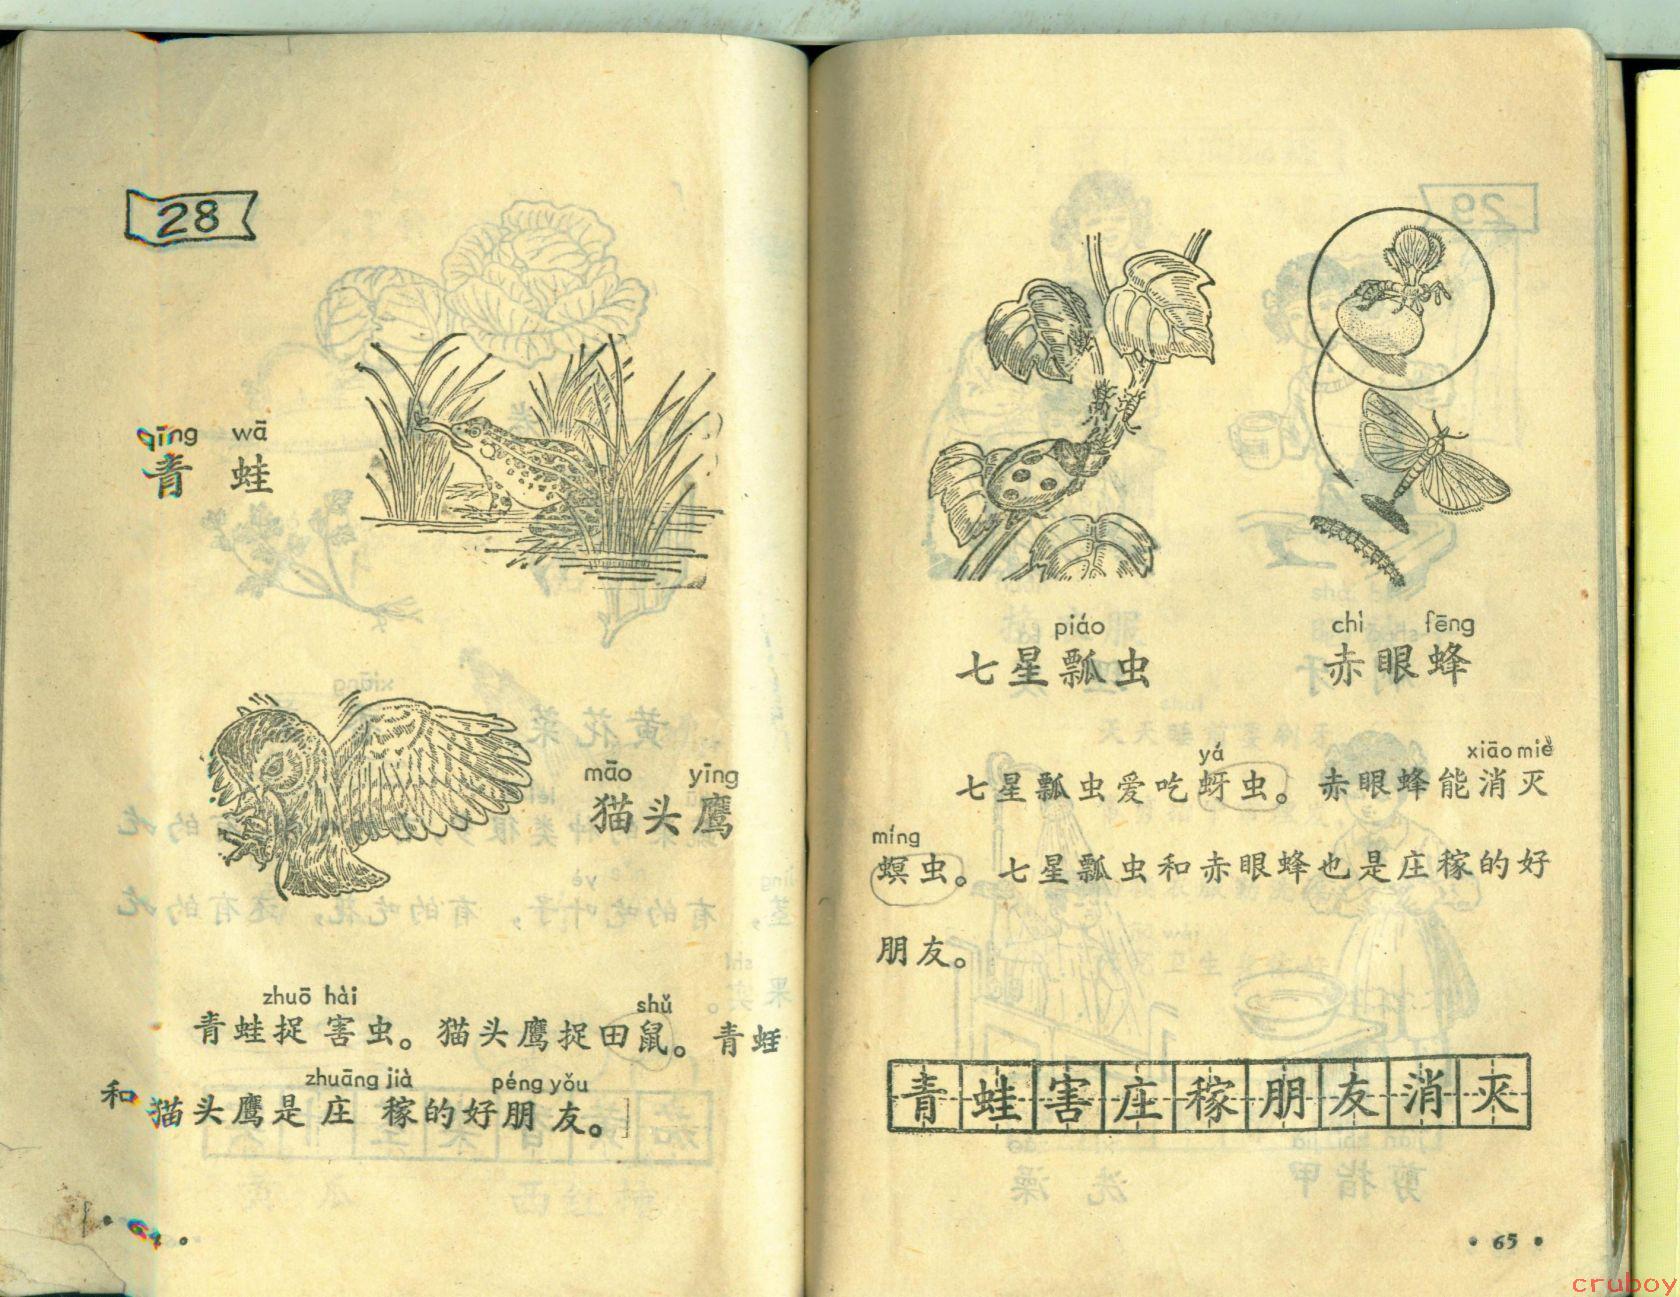 28
qīng wā
青 蛙
māo yīng
猫头鹰
zhuō hài shǔ
青蛙捉害虫。猫头鹰捉田鼠。青蛙
zhuāng jià péng yǒu
和猫头鹰是庄稼的好朋友。
piáo
七星瓢虫
chì fēng
赤眼蜂
yá xiāo miè
七星瓢虫爱吃蚜虫。赤眼蜂能消灭
míng
螟虫。七星瓢虫和赤眼蜂也是庄稼的好
朋友。
青蛙害庄稼朋友消灭
• 65 •
cruboy